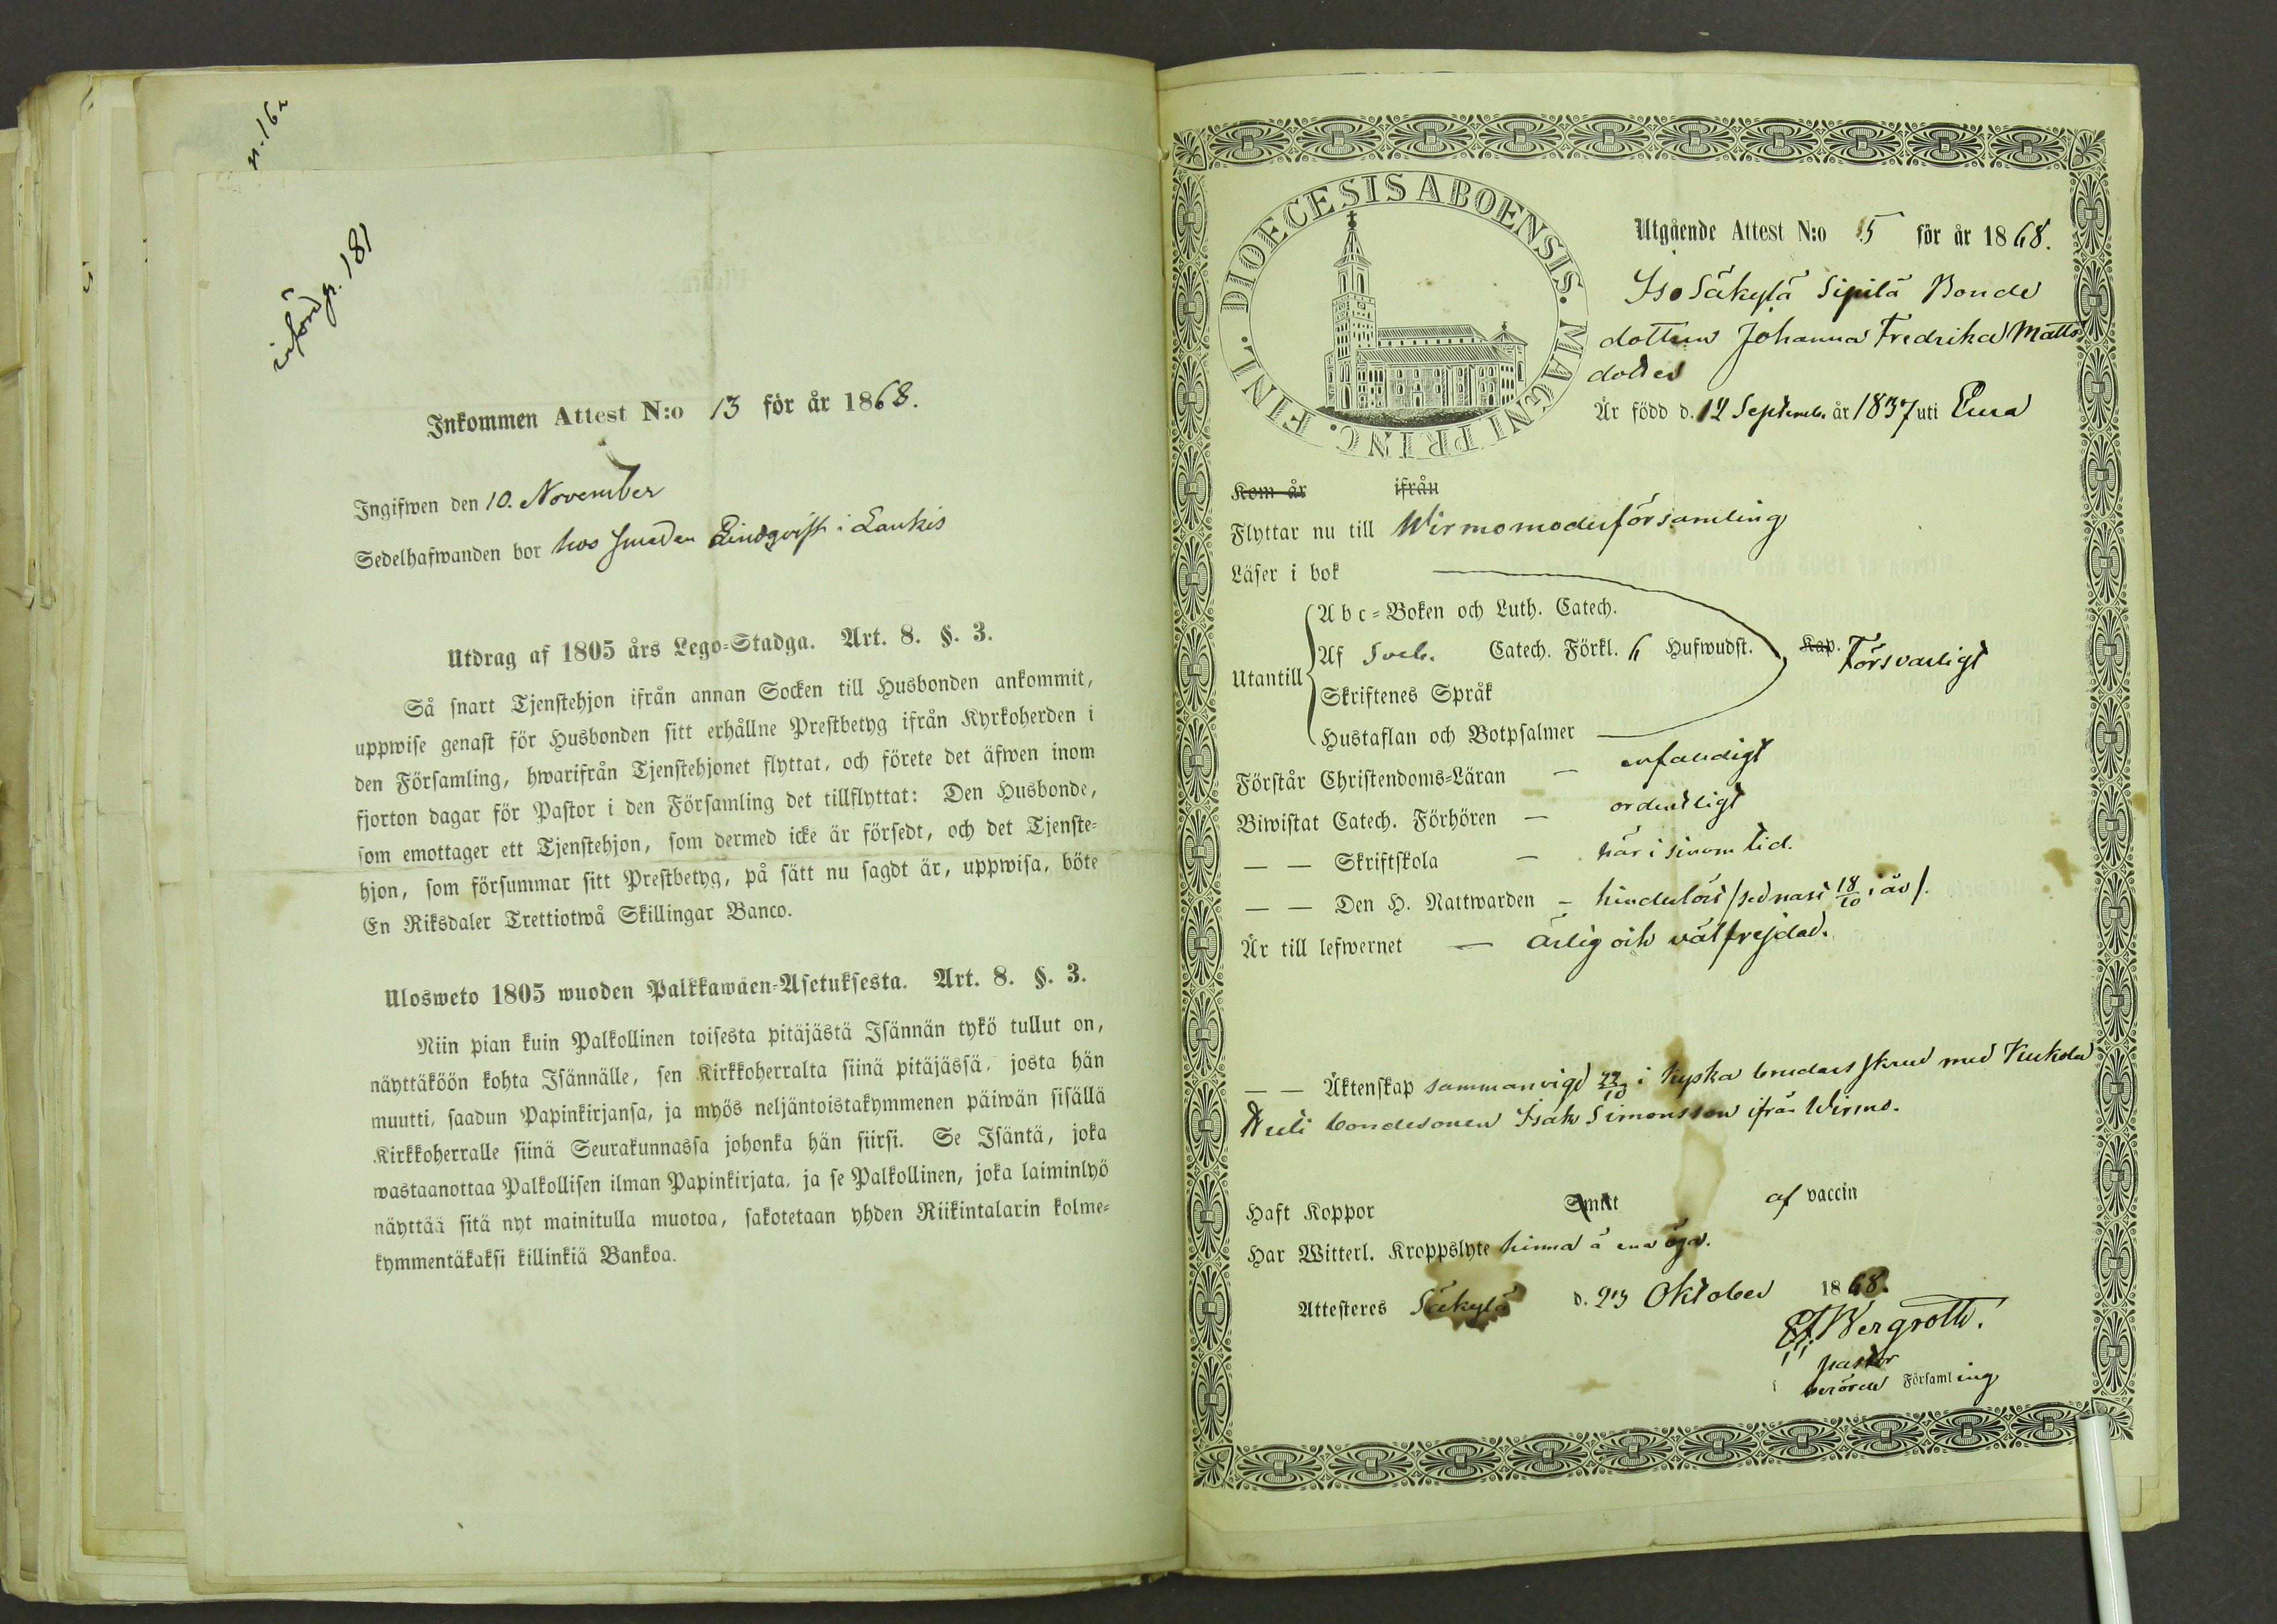 p. 162
införd p. 181
Inkommen Attest N:o 13 för år 1868.
Ingifwen den 10. November
Sedelhafwanden bor hos smeden Lindqvist i Laukis
Utdrag af 1805 års Lego-Stadga. Art. 8. §. 3.
Så snart Tjenstehjon ifrån annan Socken till Husbonden ankommit,
uppwise genast för Husbonden sitt erhållne Prestbetyg ifrån Kyrkoherden i
den Församling, hwarifrån Tjenstehjonet flyttat, och förete det äfwen inom
fjorton dagar för Pastor i den Församling det tillflyttat: Den Husbonde,
som emottager ett Tjenstehjon, som dermed icke är försedt, och det Tjenste-
hjon, som försummar sitt Prestbetyg, på sätt nu sagdt är, uppwisa, böte
En Riksdaler Trettiotwå Skillingar Banco.
Ulosweto 1805 wuoden Palkkawäen-Asetuksesta. Art. 8. §. 3.
Niin pian kuin Palkollinen toisesta pitäjästä Isännän tykö tullut on,
näyttäköön kohta Isännälle, sen Kirkkoherralta siinä pitäjässä, josta hän
muutti, saadun Papinkirjansa, ja myös neljäntoistakymmenen päiwän sisällä
Kirkkoherralle siinä Seurakunnassa johonka hän siirsi. Se Isäntä, joka
wastaanottaa Palkollisen ilman Papinkirjata, ja se Palkollinen, joka laiminlyö
näyttää sitä nyt mainitulla muotoa, sakotetaan yhden Riikintalarin kolme-
kymmentäkaksi killinkiä Bankoa.
DIOECESIS ABOENSIS. MAGNI PRINC. FINL.
Utgående Attest N:o 5 för år 1868.
Iso Säkylä Sipilä Bonde
dottren Johanna Fredrika Matts
dotter
Är född d. 12 Septemb. år 1837 uti Eura
Kom år ifrån
Flyttar nu till Wirmo moderförsamling
Läser i bok
Abc-Boken och Luth. Catech.
Utantill Af Sveb. Catech. Förkl. 6 Hufwudst. Kap. Försvarligt
Skriftenes Språk
Hustaflan och Botpsalmer
Förstår Christendoms-Läran — enfaldigt
Biwistat Catech. Förhören — ordentligt
— — Skriftskola — här i sinom tid.
— — Den H. Nattwarden — hinderlöst /sednast 18/10 i år/.
Är till lefwernet — ärlig och välfrejdad.
— — Äktenskap sammanvigd 22/10 i kyska brudars skrud med Kukola
Heli bondesonen Isak Simonsson ifrån Wirmo.
Haft Koppor Smitt af vaccin
Har Witterl. Kroppslyte hinna å ena ögat.
Attesteres Säkylä d. 23 Oktober 1868.
Bergroth.
pastor
Församling